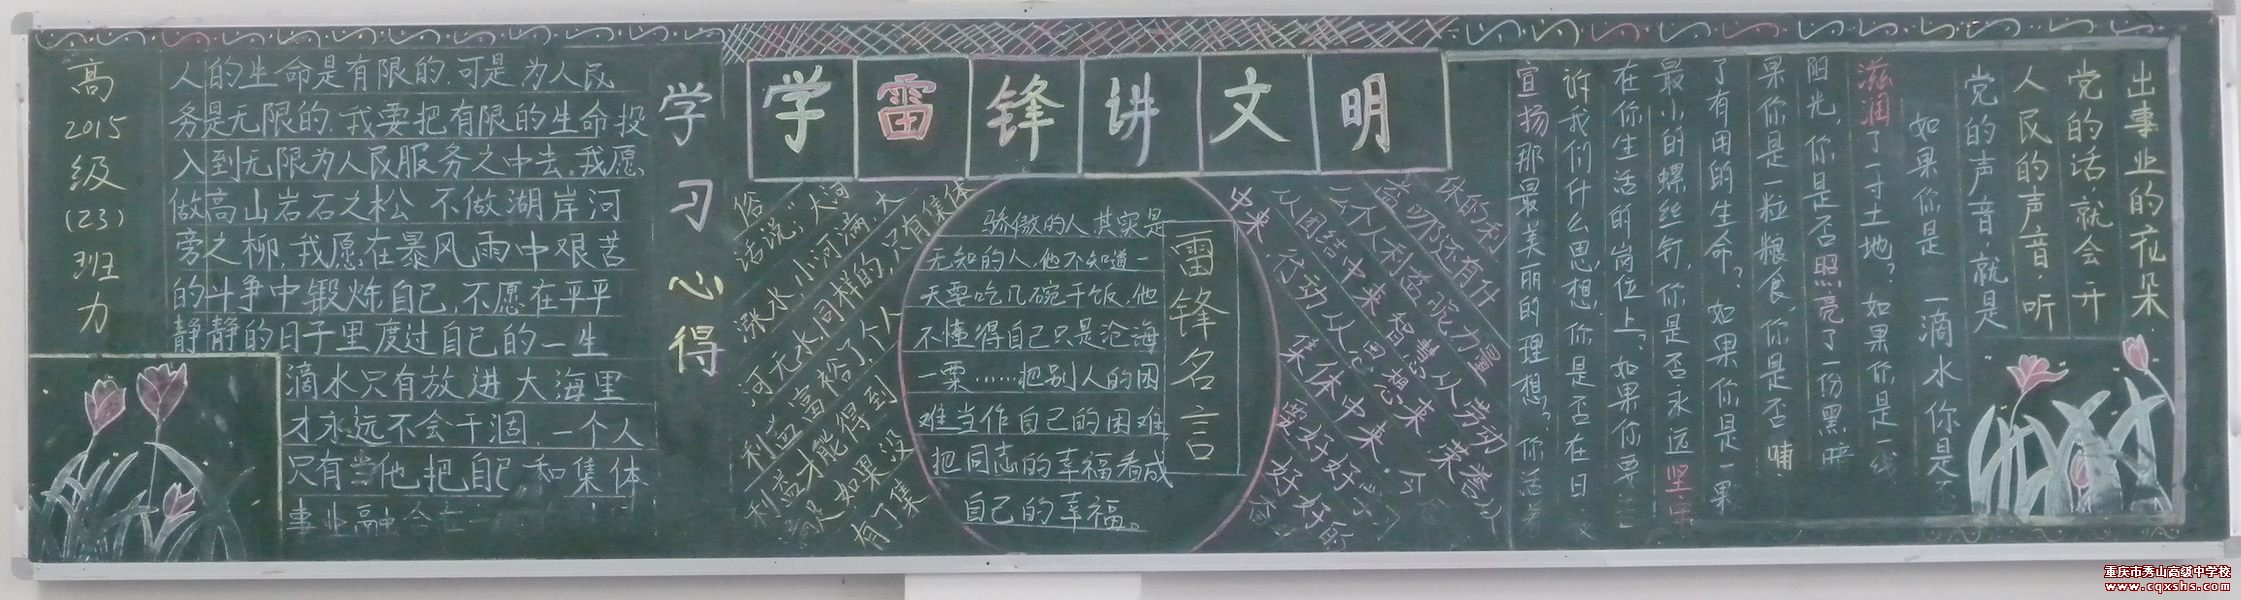 高2015级(23)班力
人的生命是有限的.可是为人民
务是无限的.我要把有限的生命投
入到无限为人民服务之中去.我愿
做高山岩石之松 不做湖岸河
旁之柳.我愿在暴风雨中艰苦
的斗争中锻炼自己,不愿在平平
静静的日子里度过自己的一生
滴水只有放进大海里
才永远不会干涸.一个人
只有当他把自己和集体
事业融合在一
学习心得
学雷锋讲文明
俗话说:"大河
涨水,小河满,大
河无水,同样的,只有集体
利益富裕了.个人
利益才能得到
满足如果没
有了集
体的利
益.哪还有什
么个人利益呢力量
从团结中来 智慧从劳动
中来.行动从思想来 荣誉从
集体中来.
要好好学习
好好的
骄傲的人.其实是
无知的人.他不知道一
天要吃几碗干饭.他
不懂得自己只是沧海
一粟……把别人的困
难当作自己的困难
把同志的幸福看成
自己的幸福。
雷锋名言
出事业的花朵
党的话,就会开
人民的声音,听
党的声音.就是
如果你是 一滴水 你是
滋润了一寸土地?如果你是一线
阳光,你是否照亮了一份黑暗
果你是一粒粮食,你是否哺
了有用的生命?如果你是一果
最小的螺丝钉,你是否永远坚守
在你生活的岗位上?如果你要
诉我们什么思想.你是否在日
宣扬那最美丽的理想?你活
重庆市秀山高级中学校
www.cqxshs.com